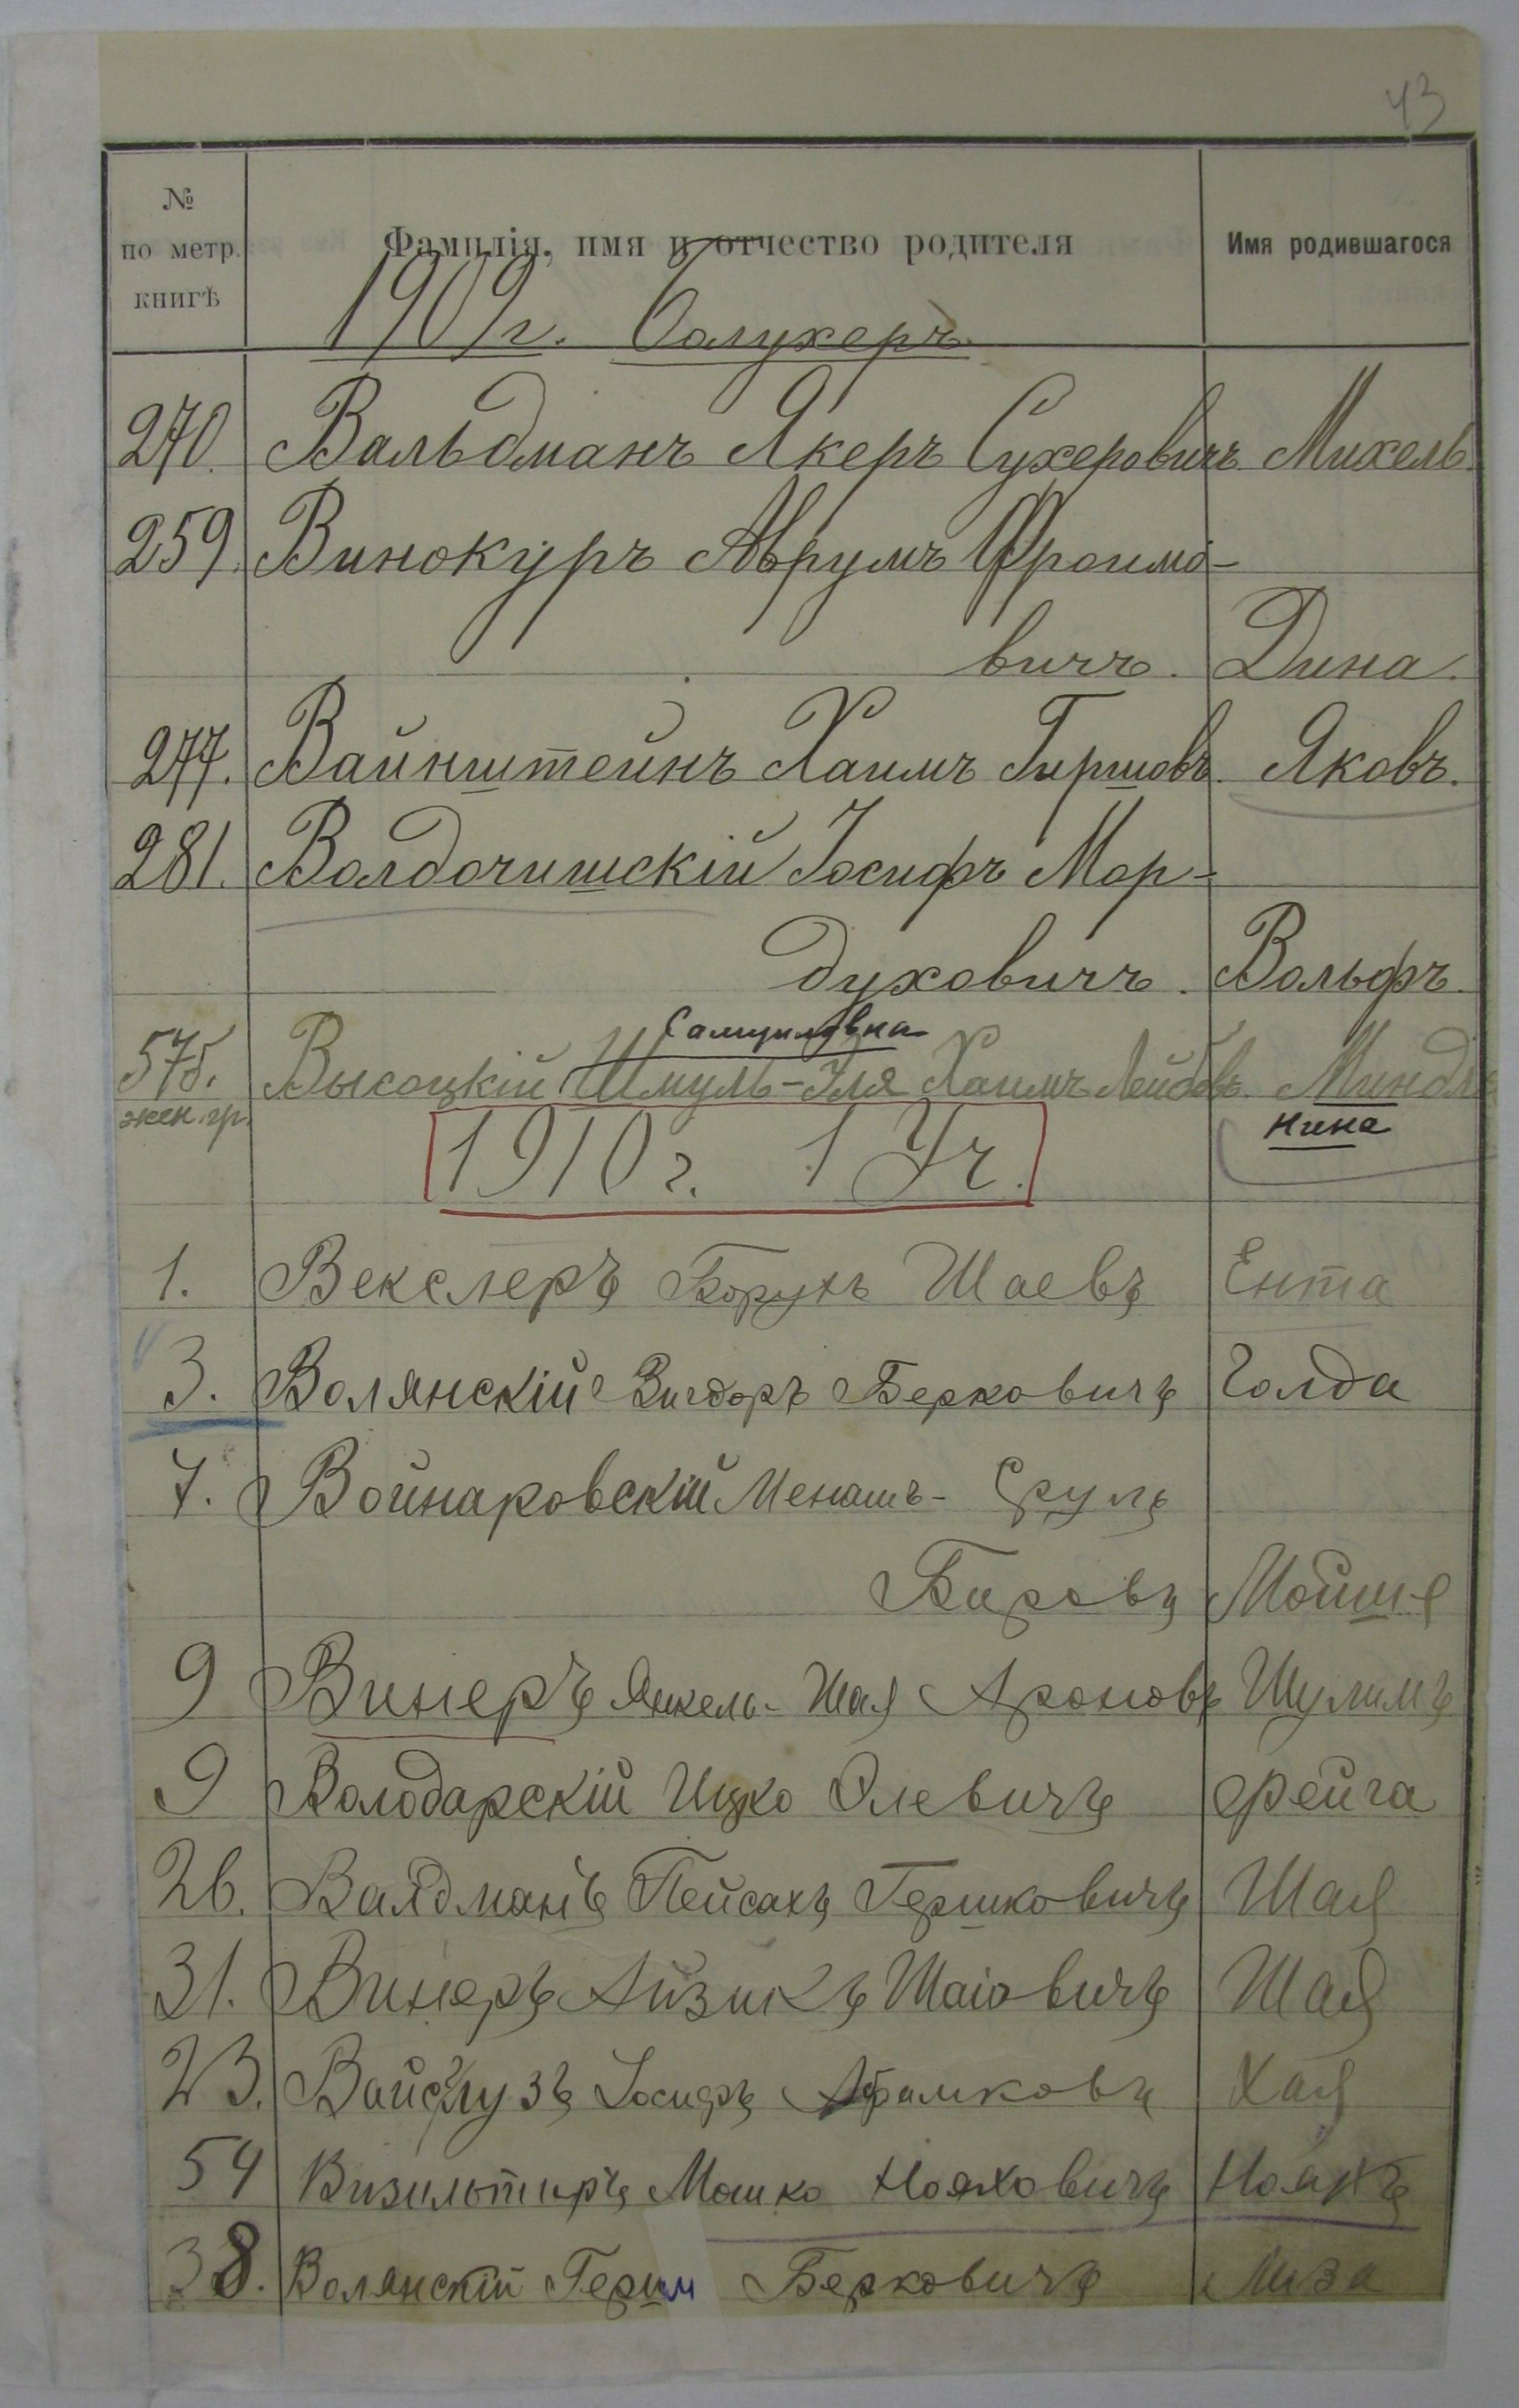 43
№ по метр. книгѣ Фамилія, имя и отчество родителя Имя родившагося
1909 г.
270. Вальдманъ Якеръ Сухеровичъ Михель.
259. Винокуръ Аврумъ Фроимо-
вичъ. Дина.
277. Вайнштейнъ Хаимъ Гершовъ. Яковъ.
281. Волдочишскій Іосифъ Мор-
духовичъ. Вольфъ.
Самуиловна
575. Высоцкій Шмуль-Эля Хаимъ Лейбовъ. Миндля
жен. гр. Нина
1910 г. 1 Уч.
1. Векслеръ Борухъ Шаевъ Ента
3. Волянскій Вигдоръ Берковичъ Голда
7. Войнаровскій Менашъ- Сруль
Беровъ Мойше
9 Винеръ Янкель-Шая Ароновъ Шулимъ
9 Володарскій Ицко Элевичъ Фейга
26. Валдманъ Пейсахъ Гершковичъ Шая
31. Винеръ Айзикъ Шаіовичъ Шая
23. Іосифъ Абрамковъ Хая
54 Визильтиръ Мошко Нояховичъ Нояхъ
38. Волянскій Герш Берковичъ